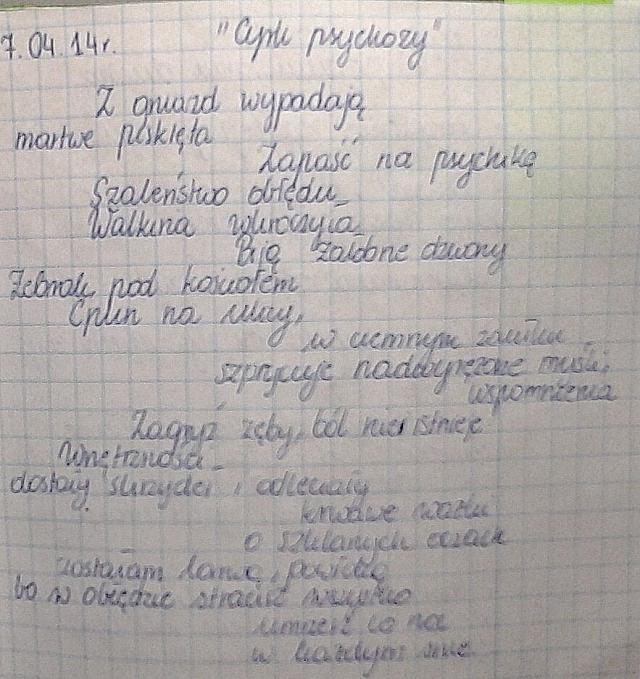 7.04.14r. "Cykl psychozy"
Z gniazd wypadają
martwe pisklęta
Zapaść na psychikę
Szaleństwo obłędu
wkroczyła
Biją żałobne dzwony
Żebrak pod kościołem
Ćpun na ulicy,
w ciemnym zaułku
szprycuje nadwyrężone myśli,
wspomnienia
Zagryź zęby, ból nie istnieje
Wnętrzności
dostały skrzydeł i odleciały
krwawe ważki
o szklanych oczach
zostałam
bo w obłędzie stracisz wszystko
umrzeć co
w każdym śnie